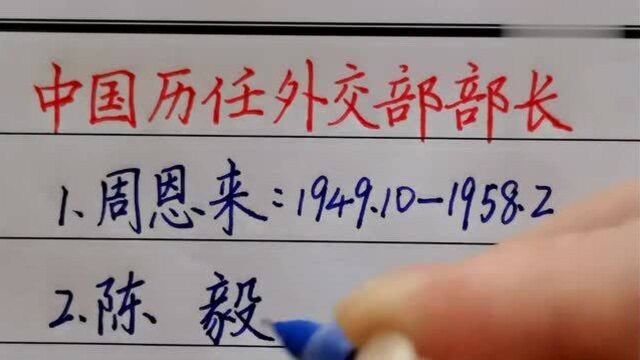 中国历任外交部部长
1.周恩来:1949.10-1958.2
2.陈 毅